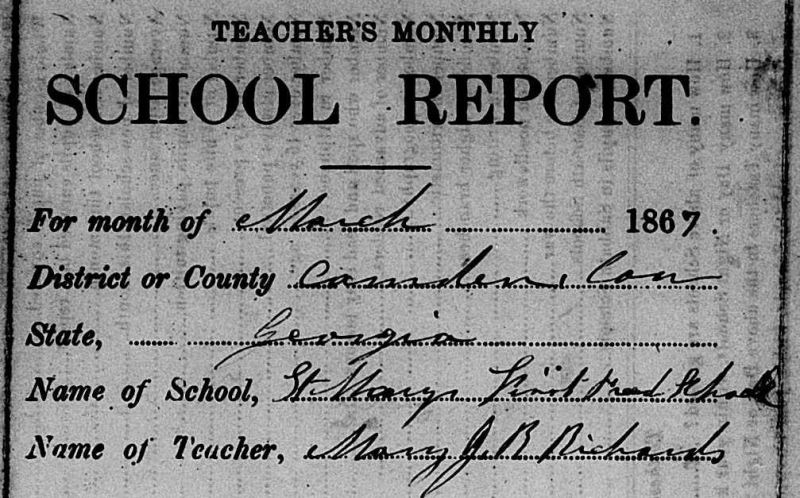 TEACHER'S MONTHLY
SCHOOL REPORT.
For month of March 1867.
District or County Camden, Cou
State, Georgia
Name of School, St Marys First Free School
Name of Teacher, Mary J. B. Richards